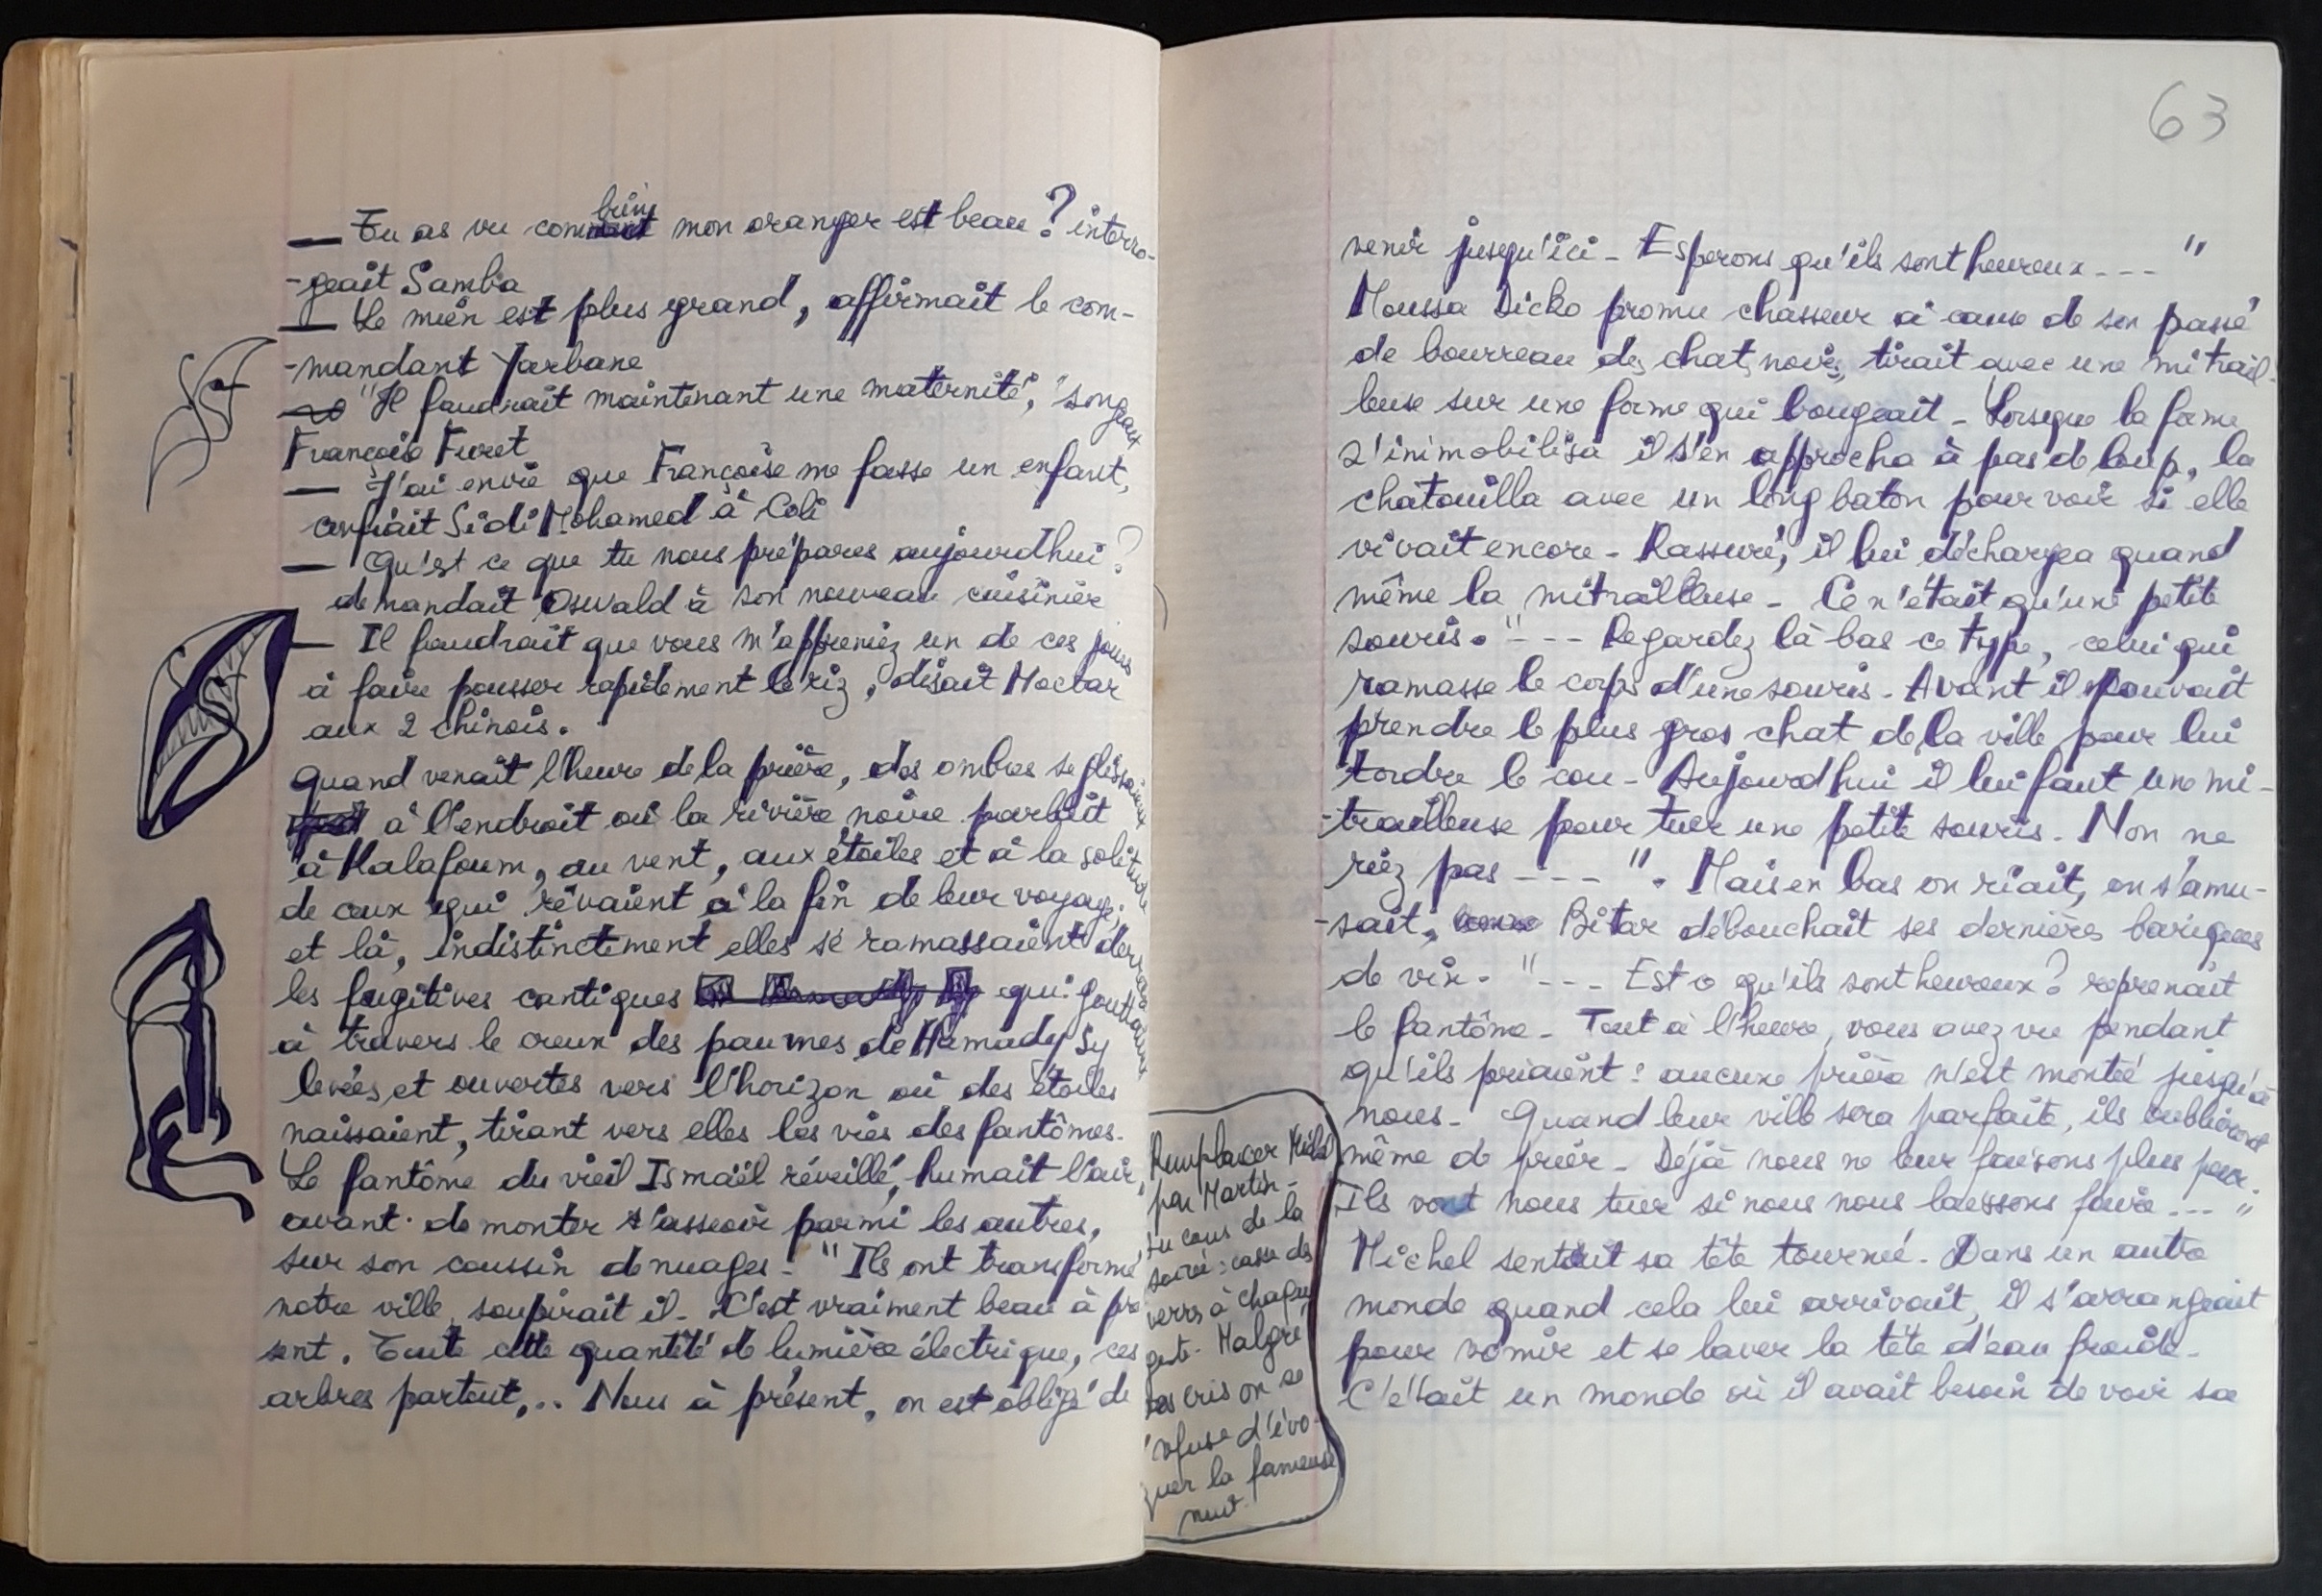 — Tu as vu combien mon oranger est beau ? interro-
-geait Samba
— Le mien est plus grand, affirmait le com-
-mandant Yarbane
"Il faudrait maintenant une maternité," songeait
Françoise Furet
— J'ai envie que Françoise me fasse un enfant,
confiait Sidi Mohamed à Coli
— Qu'est ce que tu nous prépares aujourdhui ?
demandait Oswald à son nouveau cuisinier
— Il faudrait que vous m'appreniez un de ces jours
à faire pousser rapidement le riz, disait Moctar
aux 2 chinois.
Quand venait l'heure de la prière, des ombres se glissaient
à l'endroit où la rivière noire parlait
à Kalafoum, au vent, aux étoiles et à la solitude
de ceux qui rêvaient à la fin de leur voyage.
et là, indistinctement elles se ramassaient derrière
les fugitives cantiques qui gouttaient
à travers le creux des paumes de Hamady Sy
levées et ouvertes vers l'horizon où des étoiles
naissaient, tirant vers elles les vies des fantômes.
Le fantôme du vieil Ismaël réveillé, humait l'air,
avant de monter s'asseoir parmi les autres,
sur son coussin de nuages. "Ils ont transformé
notre ville, soupirait il. C'est vraiment beau à pré
sent. Toute cette quantité de lumière électrique, ces
arbres partout,.. Nous à présent, on est obligé de
63
venir jusqu'ici - Esperons qu'ils sont heureux --- "
Moussa Dicko promu chasseur à cause de son passé
de bourreau des chats noirs, tirait avec une mitrail-
leuse sur une forme qui bougeait - Lorsque la forme
s'inimobilisa il s'en approcha à pas de loup, la
chatouilla avec un long baton pour voir si elle
vivait encore - Rassuré, il lui déchargea quand
même la mitrailleuse - Ce n'était qu'une petite
souris. "--- Regardez là bas ce type, celui qui
ramasse le corps d'une souris. Avant il pouvait
prendre le plus gros chat de la ville pour lui
tordre le cou - Aujourdhui il lui faut une mi-
-trailleuse pour tuer une petite souris. Non ne
riez pas ---- ". Mais en bas on riait, on s'amu-
-sait, Bitar débouchait ses dernières bariques
de vin. "--- Est ce qu'ils sont heureux ? reprenait
le fantôme - Tout à l'heure, vous avez vu pendant
qu'ils priaient : aucune prière n'est montée jusqu'à
nous - Quand leur ville sera parfaite, ils oublieront
même de prier - Déjà nous ne leur faisons plus peur.
Ils vont nous tuer si nous nous laissons faire --- "
Michel sentait sa tête tournée. Dans un autre
monde quand cela lui arrivait, il s'arrangeait
pour vomir et se laver la tête d'eau froide -
C'était un monde où il avait besoin de voir sa
Remplacer Michel
par Martin -
au cours de la
soirée : casse des
verres à chaque
geste. Malgré
ses cris on se
refuse d'évo-
quer la fameuse
nuit.